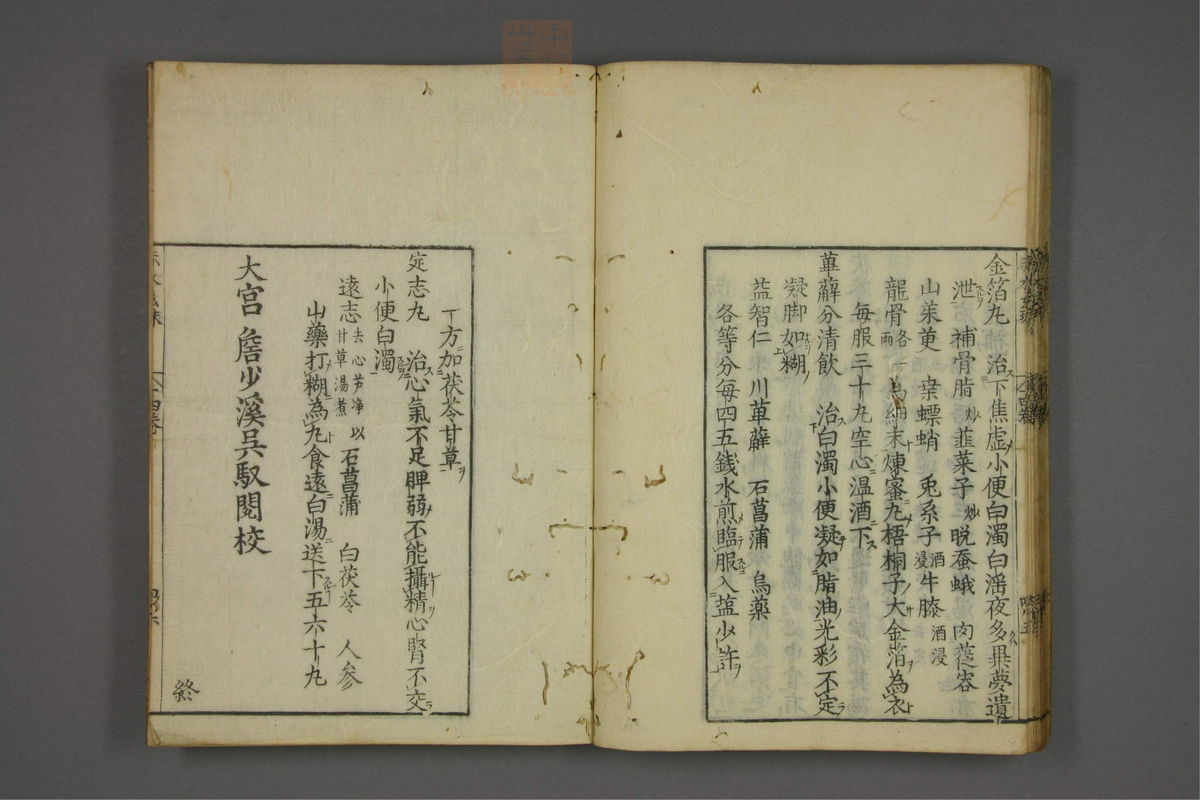 金箔丸　治下焦虚小便白濁白淫夜多異夢遺
泄　補骨脂炒　韭菜子炒　晩蚕蛾　肉蓯容
山茱萸　桒螵蛸　兎糸子酒浸　牛膝酒浸
龍骨各一両　為細末煉蜜丸梧桐子大金箔為衣
毎服三十丸空心温酒下
萆薢分清飲　治白濁小便凝如脂油光彩不定
凝脚如糊
益智仁　川萆薢　石菖蒲　烏薬
各等分毎四五銭水煎臨服入塩少許
一方加茯苓甘草
定志丸　治心氣不足脾弱不能攝精心腎不交
小便白濁
遠志去心芦净以甘草湯煮　石菖蒲　白茯苓　人参
山藥打糊為丸食遠白湯送下五六十丸
大宫　詹少溪吳馭閲校
終